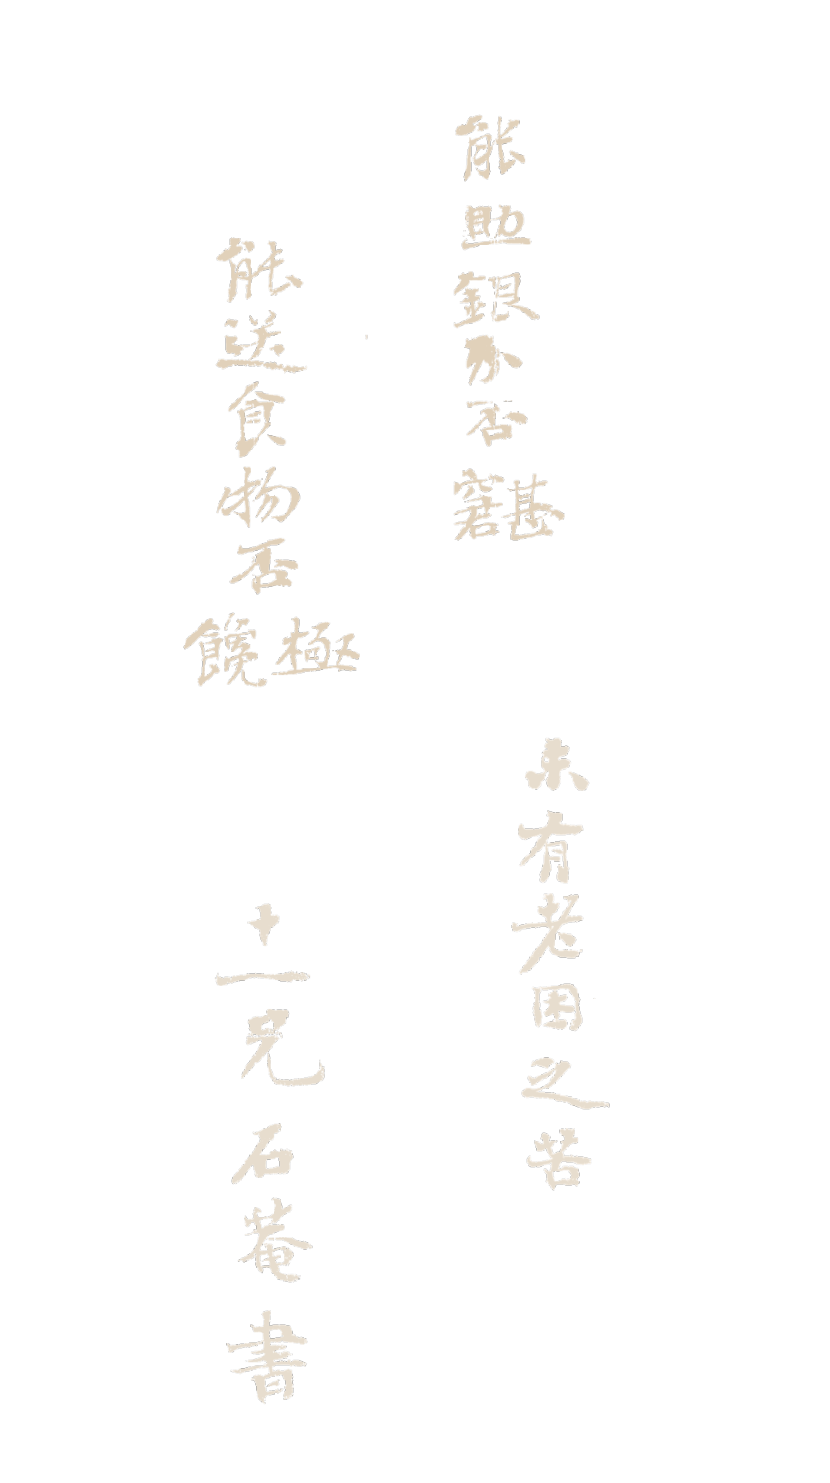 能助銀否窘甚
能送食物否饞極
未有老困之苦
十一兄石菴書